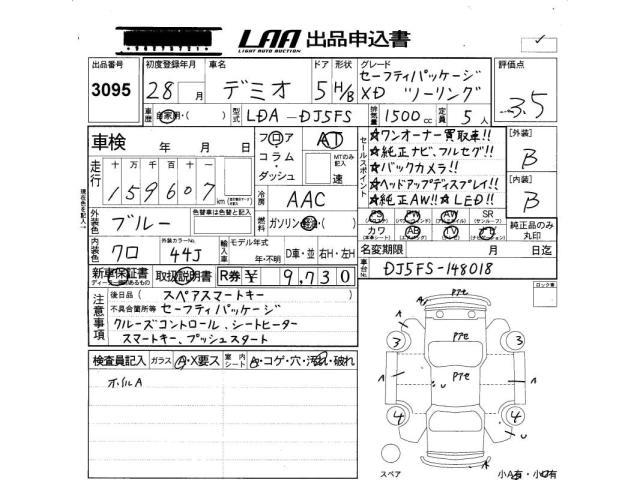 LAA 出品申込書
LIGHT AUTO AUCTION
出品番号 初度登録年月 車名 ドア 形状 グレード 評価点
3095 28 月 デミオ 5 H/B セーフティパッケージ
XD ツーリング 3.5
車歴 自家用・( ) 型式 LDA-DJ5FS 排気量 1500 cc 定員 5 人
車検 年 月 日 フロア・コラム・ダッシュ AT MTのみ記入 速
走行 十 万 千 百 十
159607 km
セールスポイント
☆ワンオーナー買取車!!
☆純正ナビ、フルセグ!!
☆バックカメラ!!
☆ヘッドアップディスプレイ!!
☆純正AW!! ☆LED!!
【外装】 B
【内装】 B
現在色を記入↑
冷房 AAC
外装色 ブルー 色替車は色替と記入 燃料 ガソリン・軽油・( )
PS PW AW SR
(パワーウインド) (サンルーフ)
カワ AB TV ナビ
(エアバッグ)
純正品のみ丸印
内装色 クロ 外装カラーNo. 44J 輸入車 モデル年式 年・不明 D車・並 右H・左H
名変期限 月 日迄
新車保証書 取扱説明書 R券 ¥ 9,730
車台No. DJ5FS-148018
注意事項
後日品 ( スペアスマートキー )
不具合箇所等 セーフティパッケージ
クルーズコントロール、シートヒーター
スマートキー、プッシュスタート
ロック車
検査員記入 ガラス A・X要ス 室内シート A・コゲ・穴・汚れ・破れ
ホイルA
A
3 3
A A
U
4 4
U
A
スペア 小A有・小U有